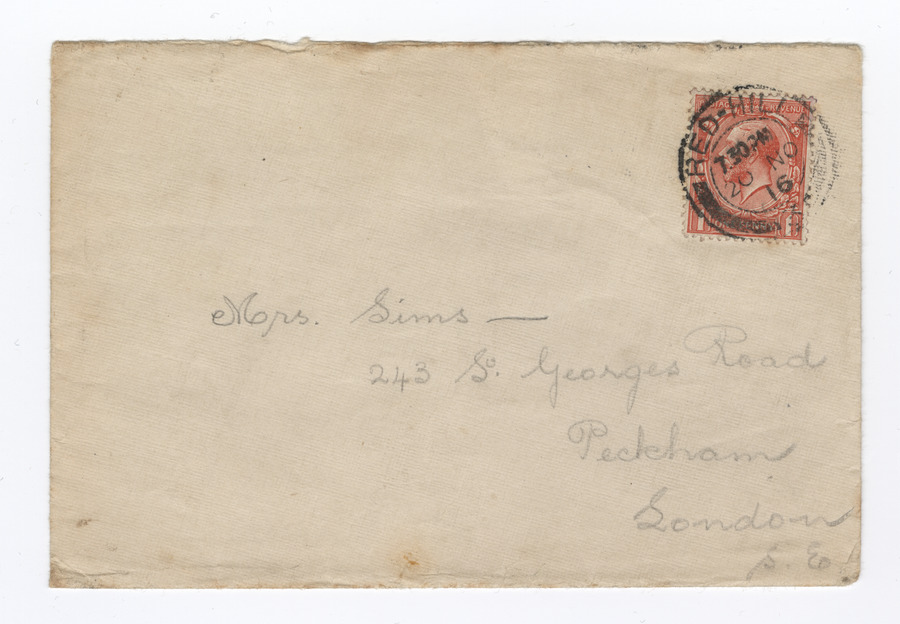 RED-HILL
7.30 PM
20 NO
16
Mrs. Sims —
243 St. Georges Road
Peckham
London
S. E.